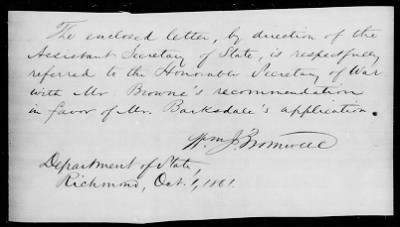 The enclosed letter, by direction of the
Assistant Secretary of State, is respectfully
referred to the Honorable Secretary of War
with Mr Browne's recommendation
in favor of Mr. Barksdale's application.
Wm. J. Bromwell
Department of State,
Richmond, Oct. 1, 1861.